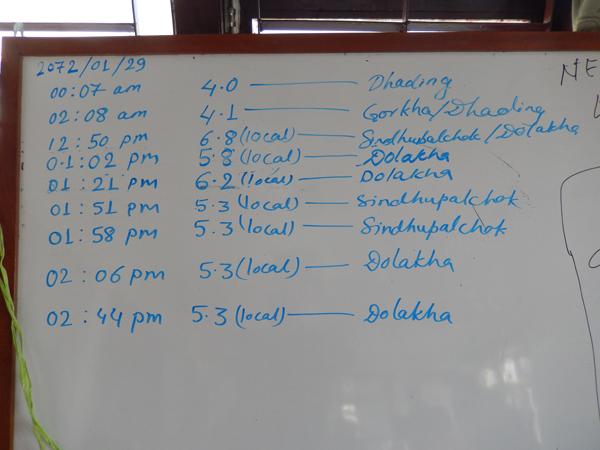 2072/01/29
00:07 am 4.0 — Dhading
02:08 am 4.1 — Gorkha/Dhading
12:50 pm 6.8 (local) — Sindhubalchok/Dolakha
01:02 pm 5.8 (local) — Dolakha
01:21 pm 6.2 (local) — Dolakha
01:51 pm 5.3 (local) — Sindhupalchok
01:58 pm 5.3 (local) — Sindhupalchok
02:06 pm 5.3 (local) — Dolakha
02:44 pm 5.3 (local) — Dolakha
NE